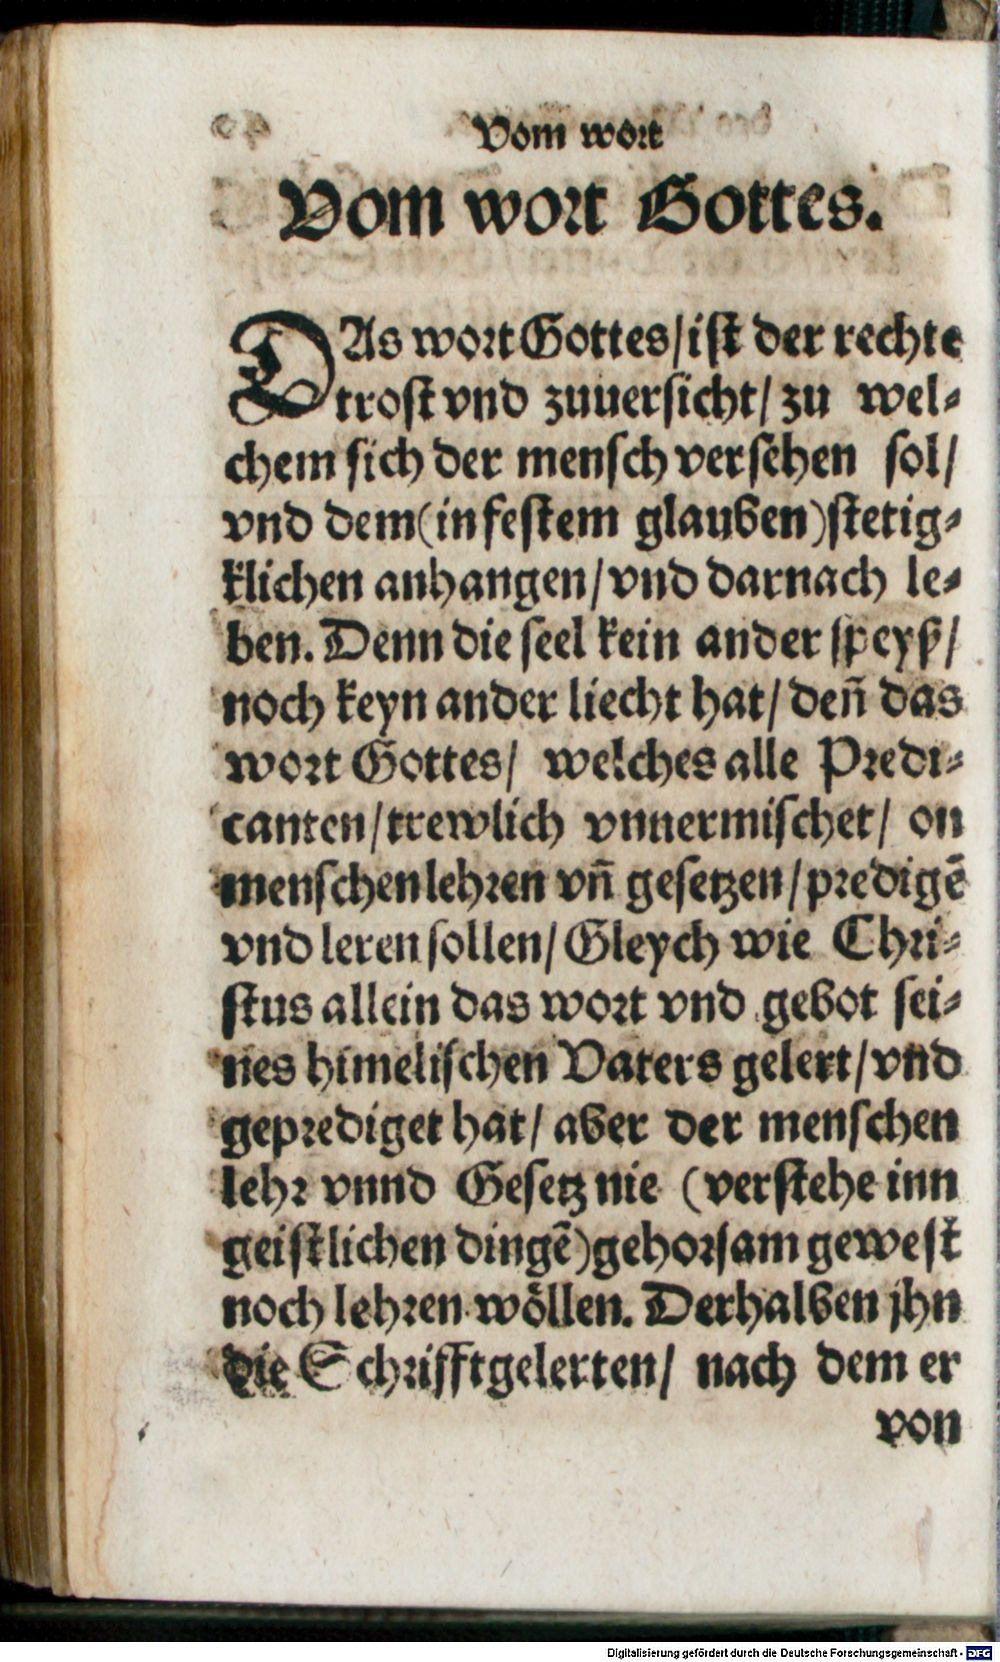 Vom wort
Vom wort Gottes.
DAs wort Gottes/ist der rechte
trost vnd zuuersicht/ zu wel-
chem sich der mensch versehen sol/
vnd dem(in festem glauben)stetig-
klichen anhangen/vnd darnach le-
ben. Denn die seel kein ander speyß/
noch keyn ander liecht hat/ deñ das
wort Gottes/ welches alle Predi-
canten/trewlich vnuermischet/ on
menschen lehren vñ gesetzen/predigē
vnd leren sollen/ Gleych wie Chri-
stus allein das wort vnd gebot sei-
nes himelischen Vaters gelert/vnd
geprediget hat/ aber der menschen
lehr vnnd Gesetz nie (verstehe inn
geistlichen dingē)gehorsam gewest
noch lehren wöllen. Derhalben jhn
die Schrifftgelerten/ nach dem er
von
Digitalisierung gefördert durch die Deutsche Forschungsgemeinschaft - DFG